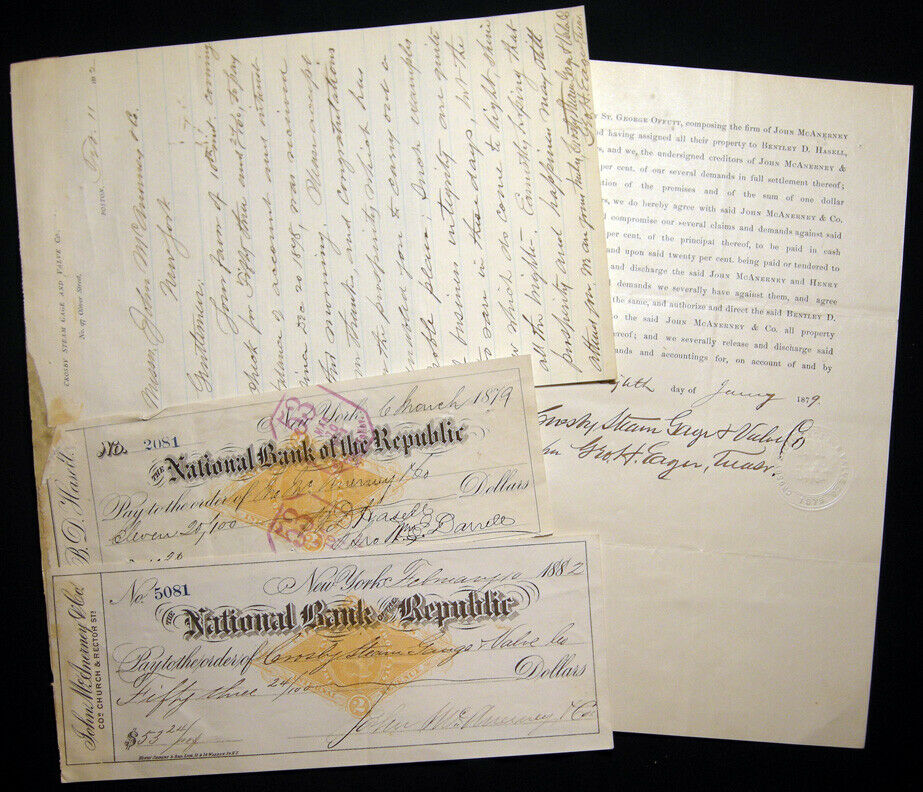 CROSBY STEAM GAGE AND VALVE CO.
No. 97 Oliver Street,
BOSTON,
11
Messrs John McAnerney & Co.
New York
Gentlemen.
Your favor of 10th inst. coming
check for Fifty three and 24/100 to pay
balance of account and interest
since Dec 20 1878, was received
this morning. Please accept
our thanks, and congratulations
on the prosperity which has
enabled you to carry out a
noble plan; Such examples
of business integrity are quite
so rare in these days, but the
few which do come to light, shine
all the brighter. Earnestly hoping that
prosperity and happiness may still
attend you. We are yours truly, Crosby Steam Gage & Valve Co
Geo. H. Eager Treas.
ST. GEORGE OFFUTT, composing the firm of JOHN MCANERNEY
having assigned all their property to BENTLEY D. HASELL,
and we, the undersigned creditors of JOHN MCANERNEY &
per cent. of our several demands in full settlement thereof;
tion of the premises and of the sum of one dollar
rs, we do hereby agree with said JOHN MCANERNEY & CO.
compromise our several claims and demands against said
per cent. of the principal thereof, to be paid in cash
and upon said twenty per cent. being paid or tendered to
and discharge the said JOHN MCANERNEY and HENRY
demands we severally have against them, and agree
the same, and authorize and direct the said BENTLEY D.
to the said JOHN MCANERNEY & CO. all property
ereof; and we severally release and discharge said
nds and accountings for, on account of and by
day of January 1879.
Crosby Steam Gage & Valve Co
Geo. H. Eager, Treasr.
B. D. Hasell.
No. 2081
New York, 6 March 1879
THE National Bank of the Republic
Pay to the order of Jno McAnerney & Co
Eleven 20/100 Dollars
B D Hasell
John McAnerney & Co.
COR CHURCH & RECTOR STS
No. 5081
New York, February 10 1882
THE National Bank OF THE Republic
Pay to the order of Crosby Steam Gauge & Valve Co
Fifty three 24/100 Dollars
2
$53 24/100
John McAnerney & Co